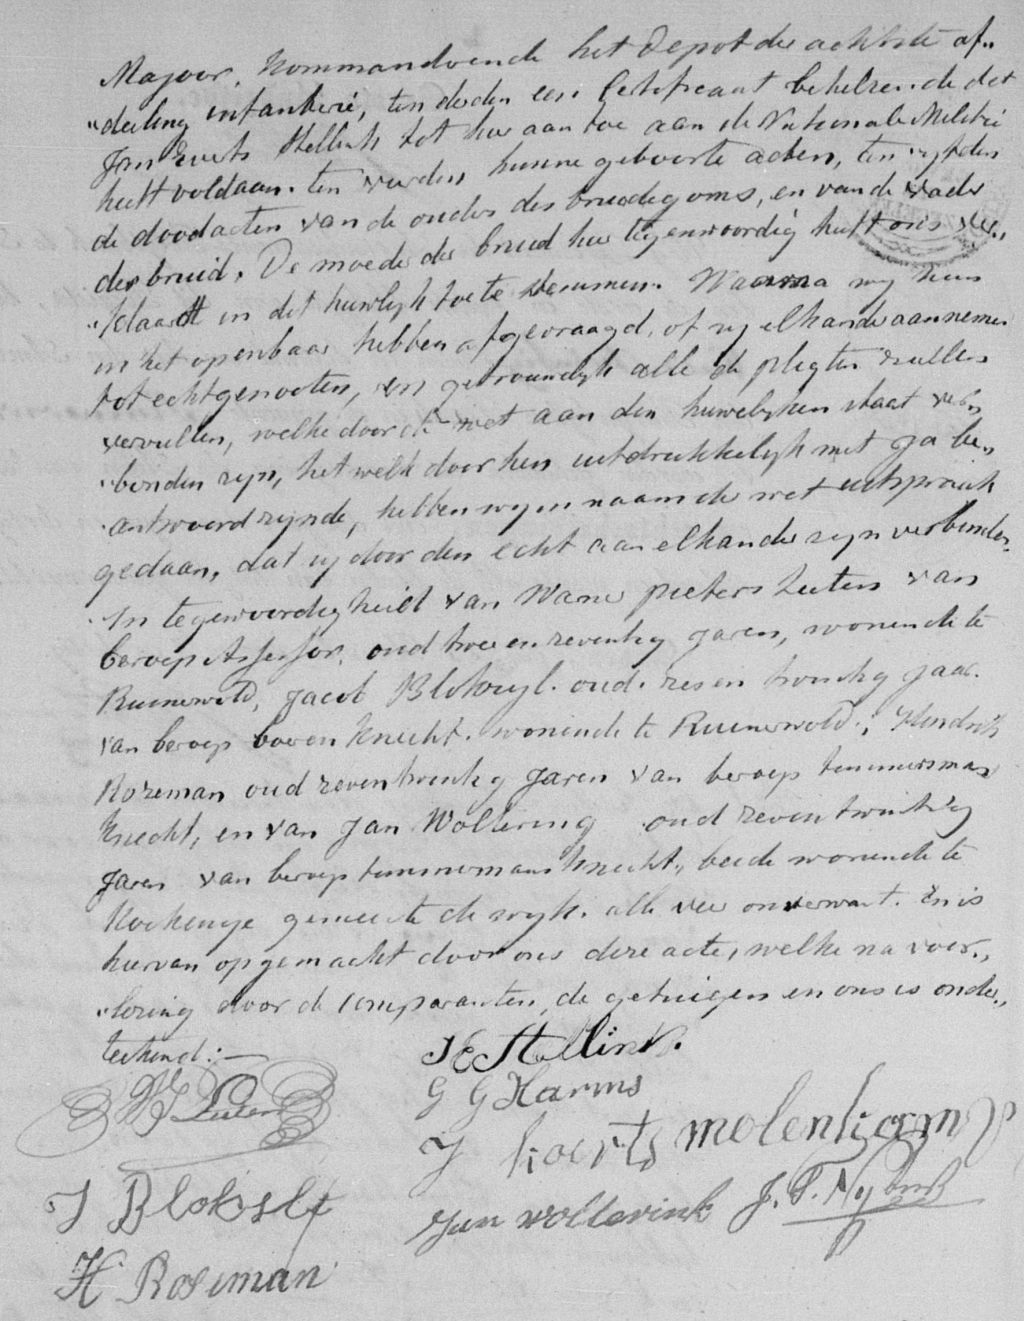 Majoor. Kommandeerende het Depot der achtste af„
„deeling infanterie, ten derden een Certificaat behelzende dat
Jan Everts Stellink tot hier aan toe aan de Nationale Militie
heeft voldaan. ten vierden hunne geboorte acten, ten vyfden
de doodacten van de ouders des bruidegoms, en van de vader
der bruid. De moeder der bruid hier tegenwoordig heeft ons ver„
„klaardt in dit huwlyk toe te stemmen. Waarna wy hun
in het openbaar hebben afgevraagd, of zy elkander aannemen
tot echtgenooten, en getrouwelyk alle de pligten zullen
vervullen, welke door de wet aan den huwelyken staat ver„
„bonden zyn, het welk door hen uitdrukkelyk met ja be„
„antwoord zynde, hebben wy in naam der wet uitspraak
gedaan, dat zy door den echt aan elkander zyn verbonden.
In tegenwoordigheid van Warner pieters Luten van
beroep Assessor. oud twee en zeventig jaren, wonende te
Ruinerwold, Jacob Blokzyl. oud. zes en twintig jaar.
van beroep boeren knecht. wonende te Ruinerwold; Hendrik
Rozeman oud zeven twintig jaren van beroep timmerman
knecht, en van Jan Woltering oud zeven twintig
jaren van beroep timmermans knecht, beede wonende te
Kockenge gemeente de wyk. alle vier onverwant. En is
hiervan opgemaakt door ons deze acte, welke na voor„
„lezing door de comparanten, de getuigen en ons is onder„
teekend:—
J E Stellink.
W P Luten
G G Harms
J koerts molenkamp
J Blokzyl
Jan wolterink J. P. Nysingh
H Roseman